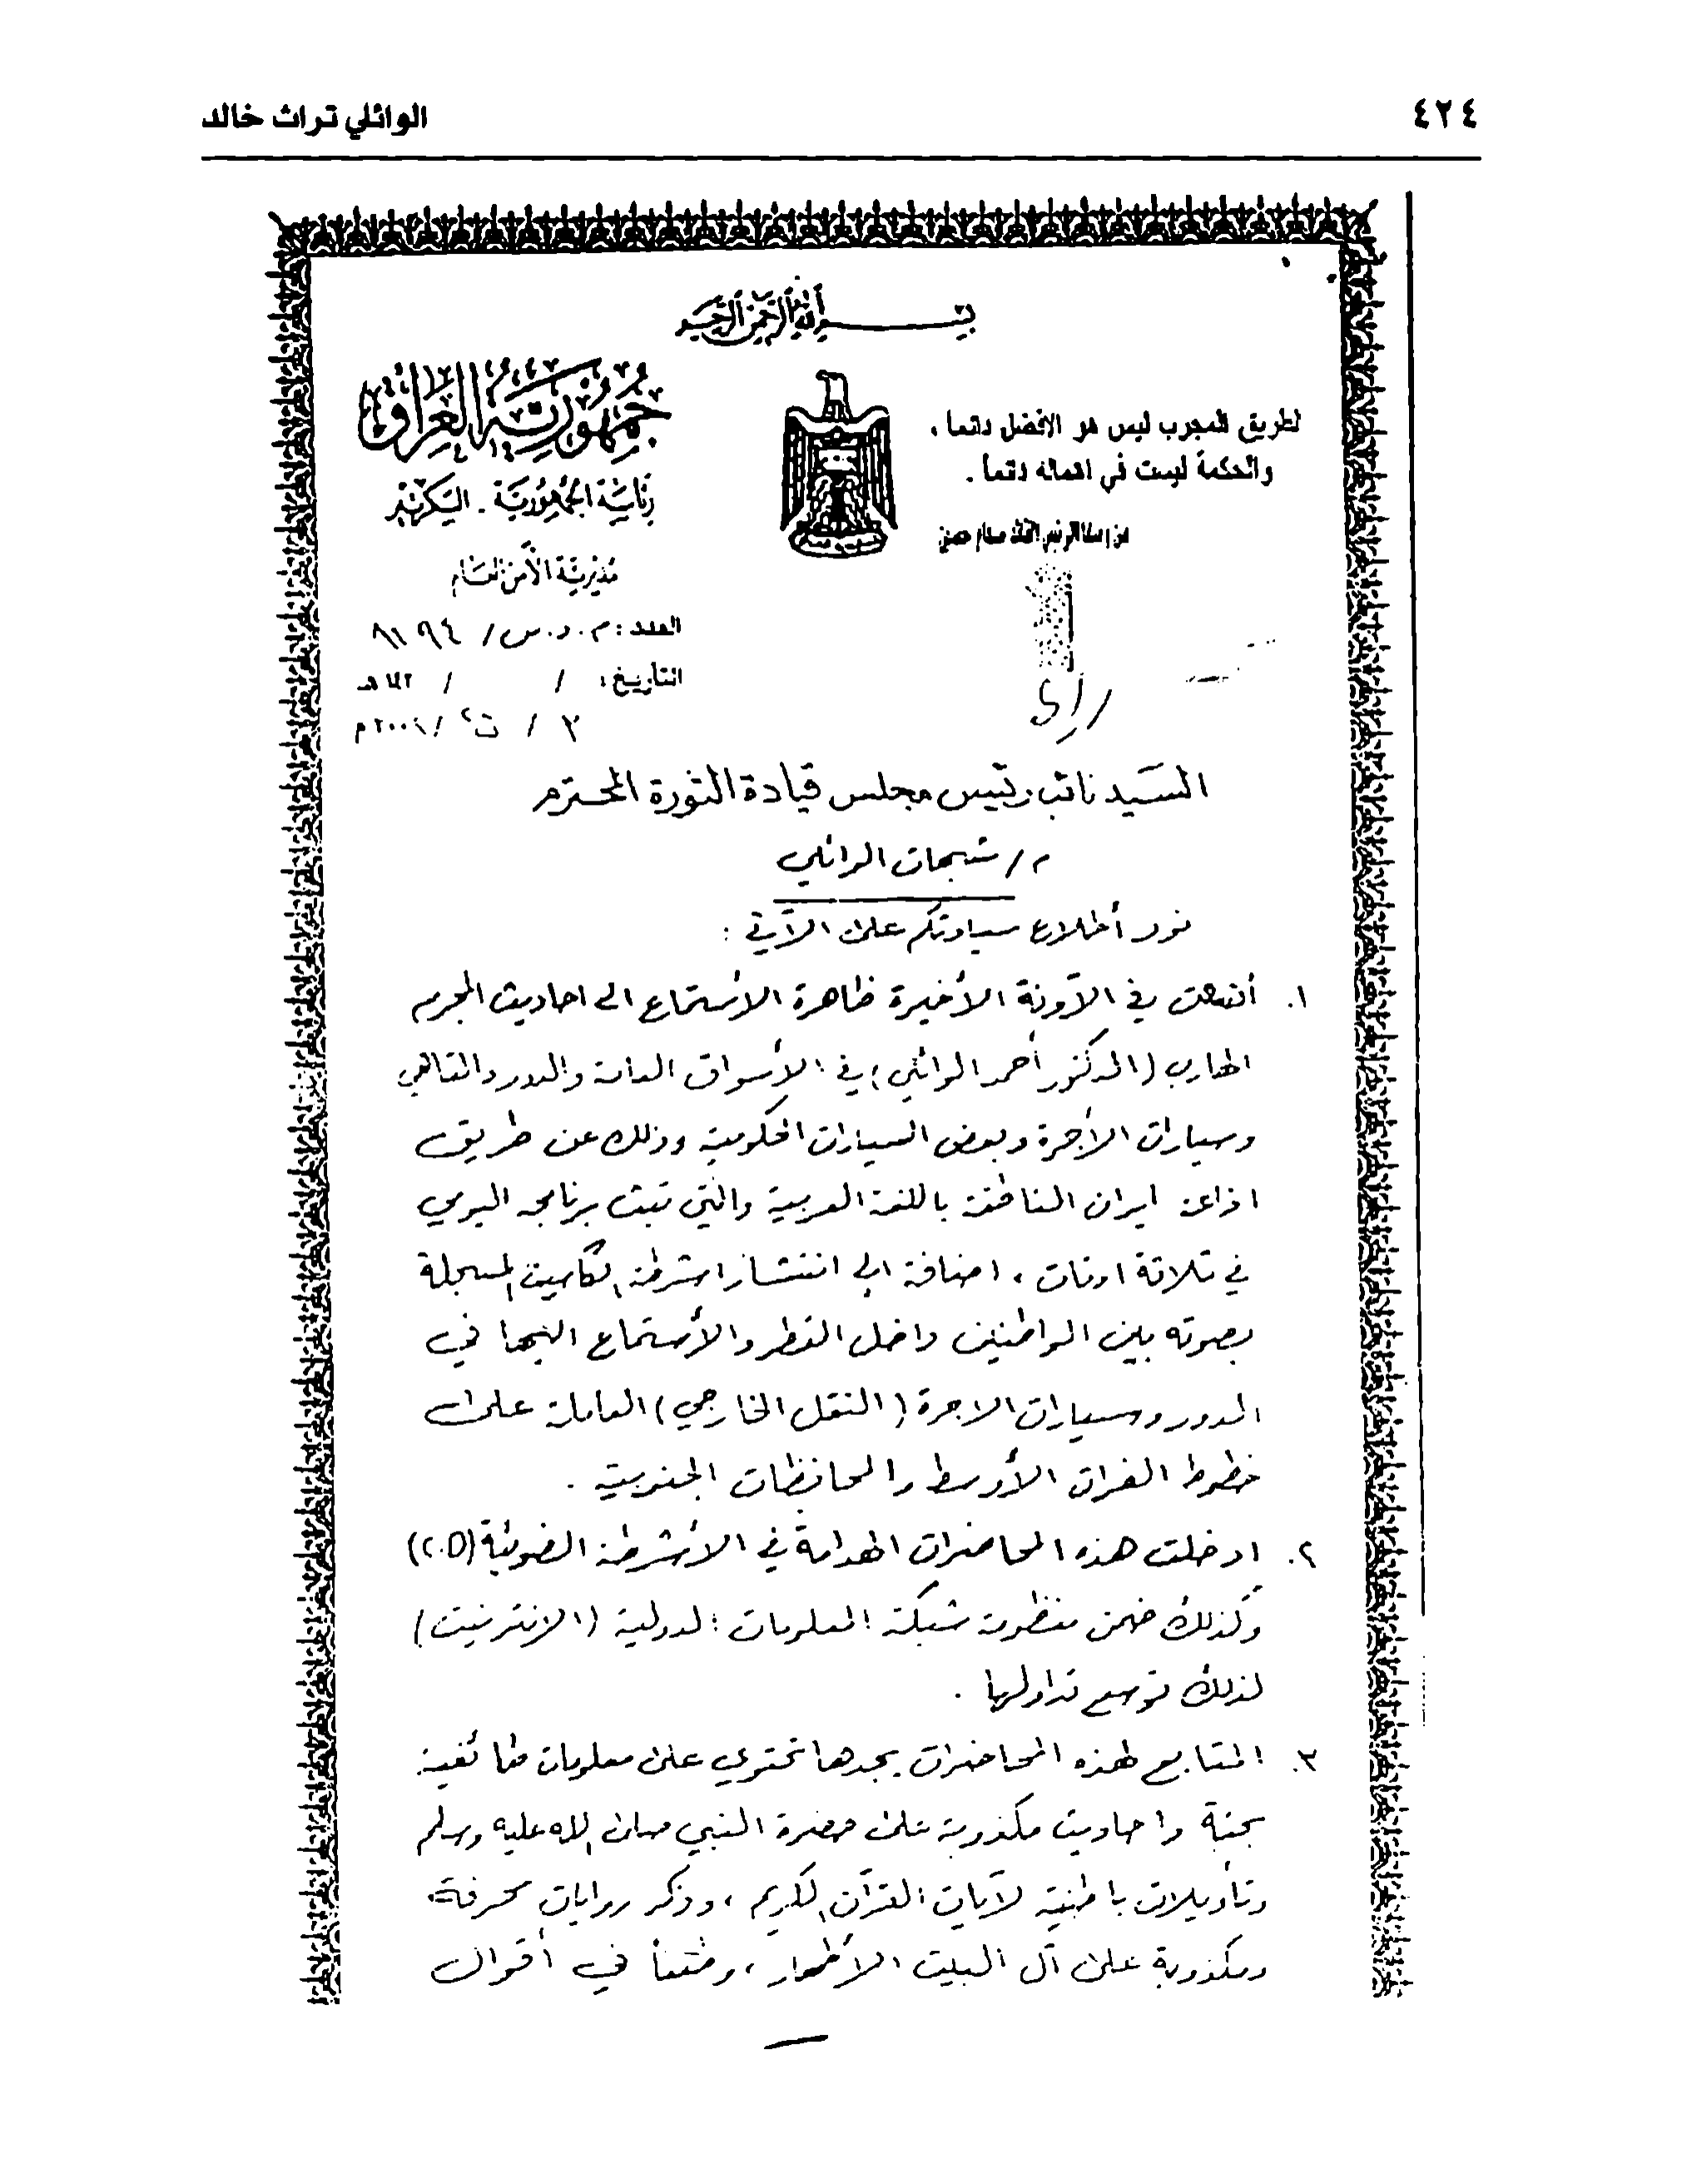 ٤٢٤
الوائلي تراث خالد
بسم الله الرحمن الرحيم
جمهورية العراق
رئاسة الجمهورية - السكرتير
مديرية الأمن العام
العدد : م . د . س / ٨١٩٤
التاريخ : / / ١٤٢ هـ
٣ / ت٢ / ٢٠٠١م
لطريق المجرب ليس هو الافضل دائما ،
والحكمة ليست في اهماله دائما .
من وصايا الرئيس القائد صدام حسين
السيد نائب رئيس مجلس قيادة الثورة المحترم
م / شبهات الوائلي
نود أطلاع سيادتكم على الآتي :
١. في الآونة الأخيرة ظاهرة الأستماع الى احاديث المجرم
الهارب (الدكتور أحمد الوائلي) في الأسواق العامة والدور والمقاهي
وسيارات الأجرة وبعض السيارات الحكومية وذلك عن طريق
اذاعة ايران الناطقة باللغة العربية والتي تبث برنامجه اليومي
في ثلاثة اوقات ، اضافة الى انتشار اشرطة الكاسيت المسجلة
بصوته بين المواطنين داخل القطر والأستماع اليها في
الدور وسيارات الاجرة (النقل الخارجي) العاملة على
خطوط الفرات الأوسط والمحافظات الجنوبية .
٢. ادخلت هذه المحاضرات الهدامة في الأشرطة الضوئية (C.D)
وكذلك ضمن منظومة شبكة المعلومات الدولية (الانترنيت)
لذلك توسع تداولها .
٣. المتابع لهذه المحاضرات يجدها تحتوي على معلومات طائفية
بحتة واحاديث مكذوبة على حضرة النبي صلى الله عليه وسلم
وتأويلات باطنية لآيات القرآن الكريم ، وذكر روايات محرفة
ومكذوبة على آل البيت الأطهار ، وطعناً في أقوال